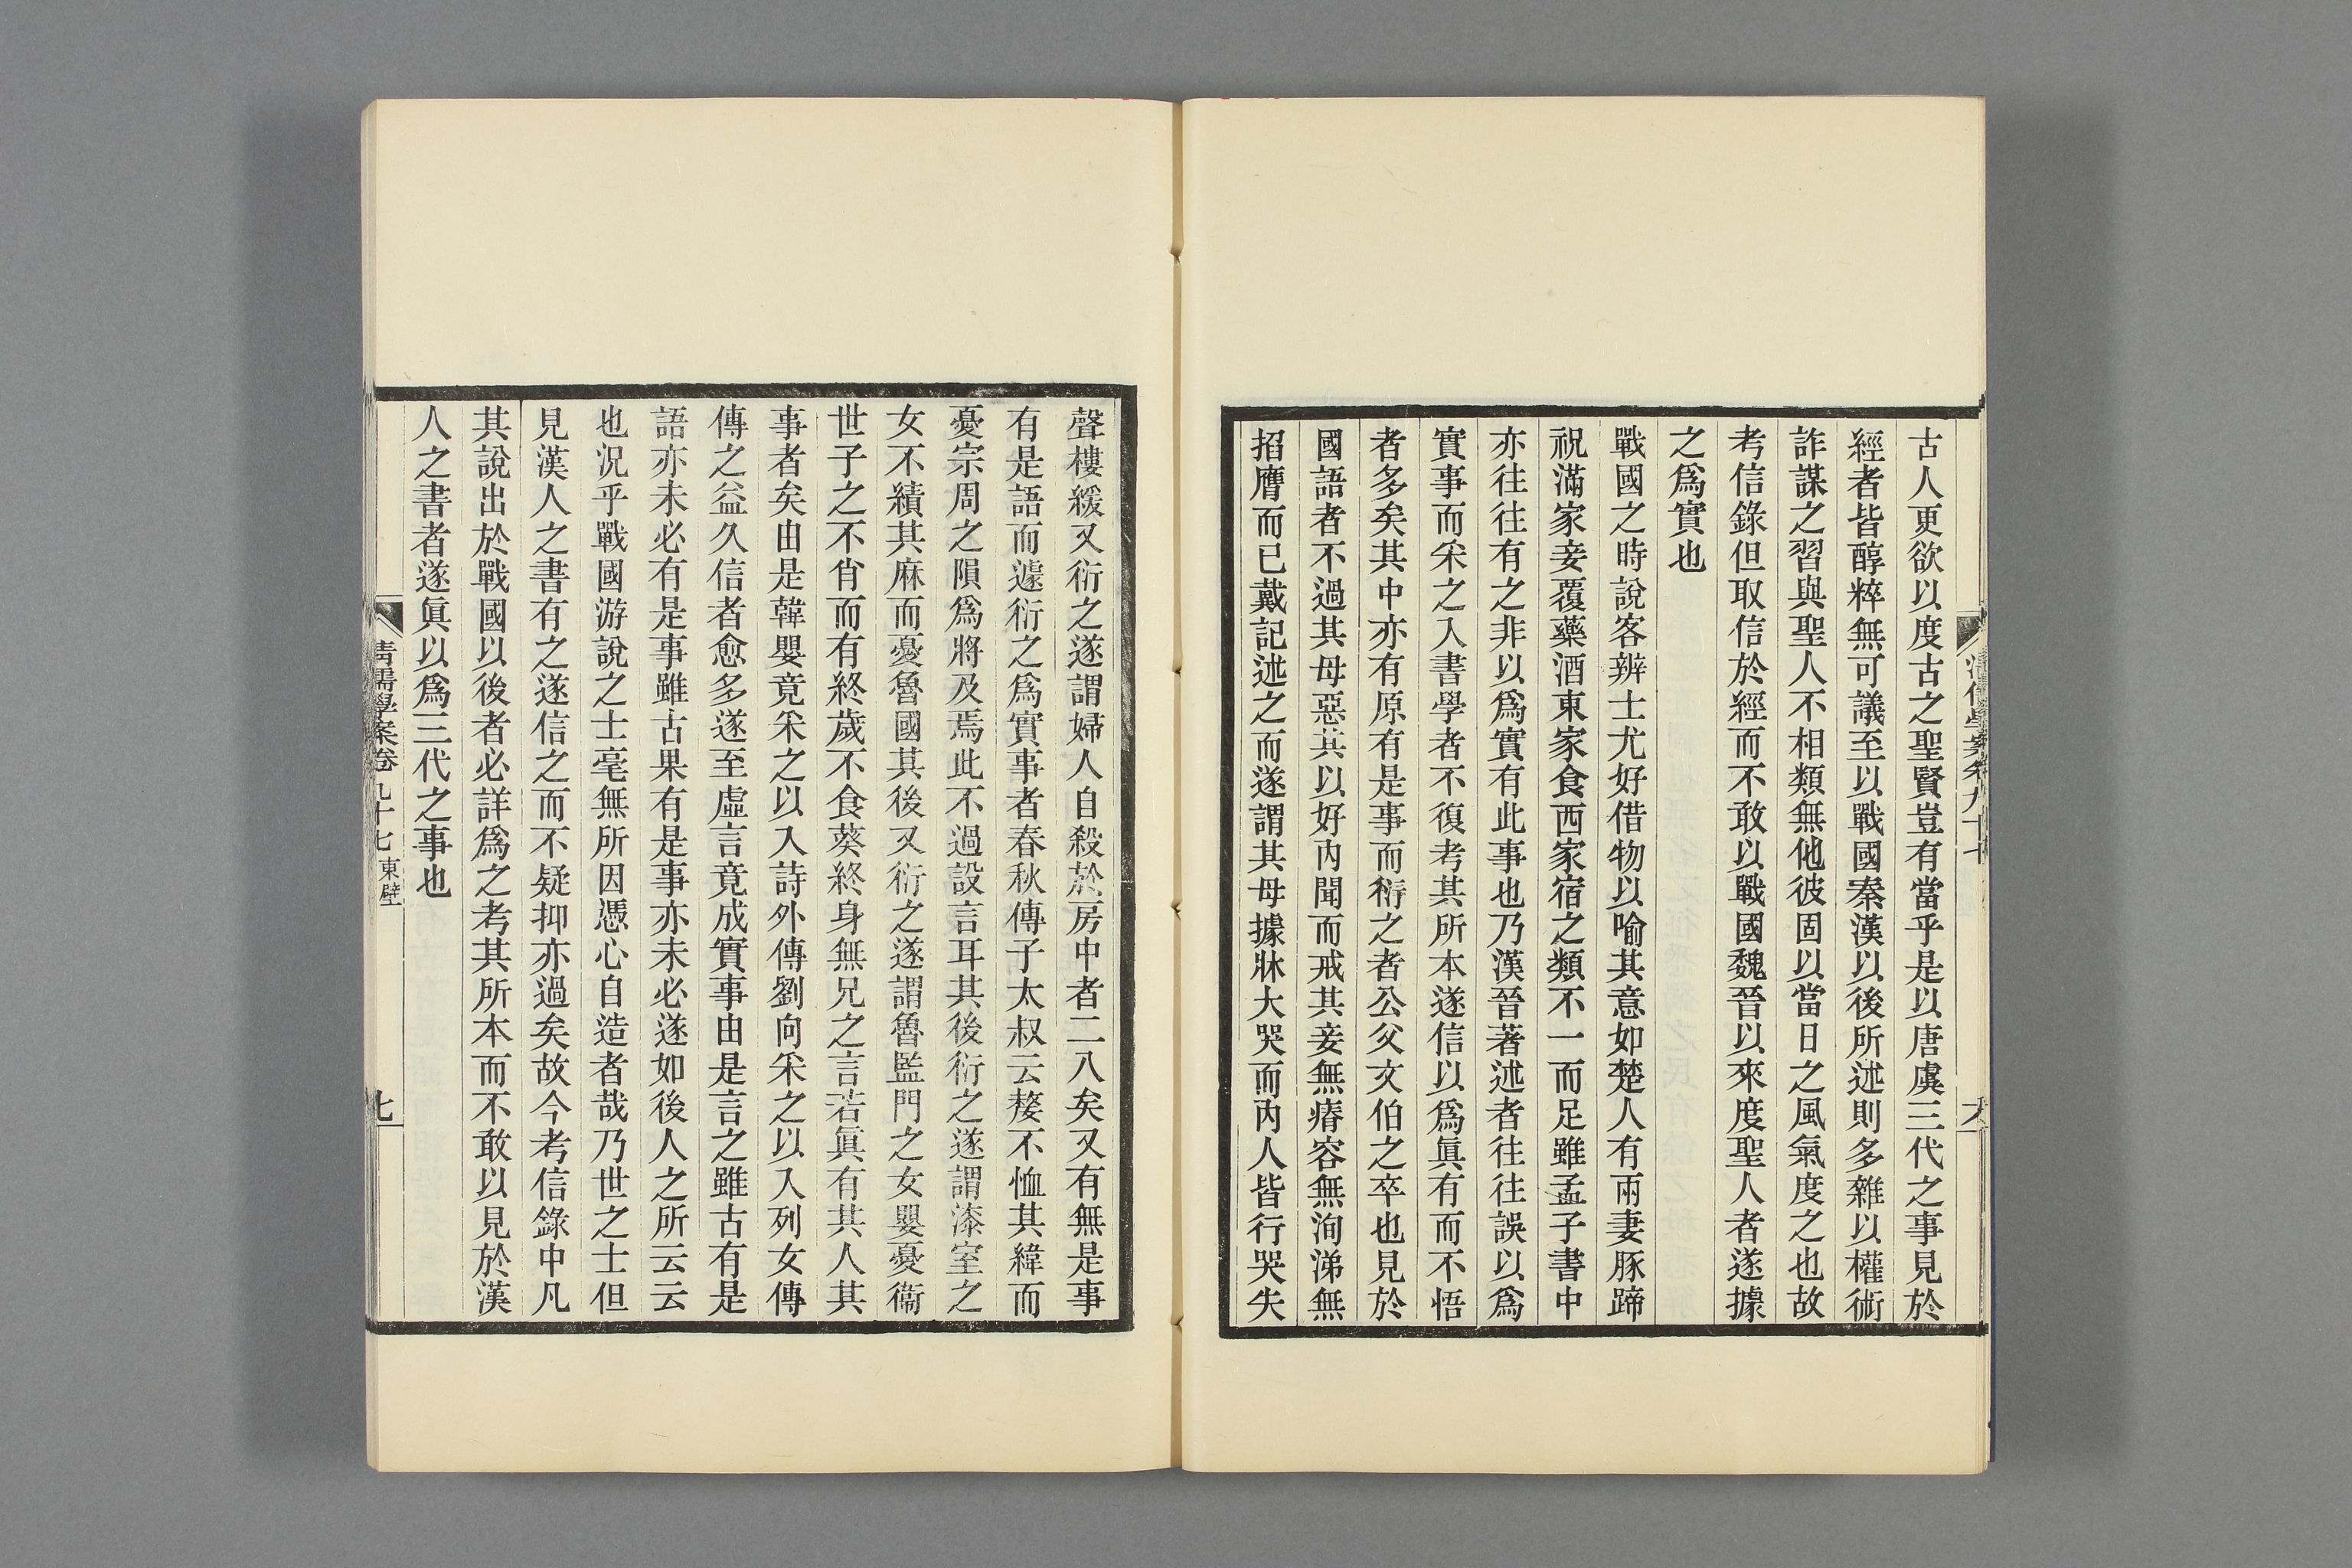 古人更欲以度古之聖賢豈有當乎是以唐虞三代之事見於
經者皆醇粹無可議至以戰國秦漢以後所述則多雜以權術
詐謀之習與聖人不相類無他彼固以當日之風氣度之也故
考信錄但取信於經而不敢以戰國魏晉以來度聖人者遂據
之爲實也
戰國之時說客辨士尤好借物以喻其意如楚人有兩妻豚蹄
祝滿家妾覆藥酒東家食西家宿之類不一而足雖孟子書中
亦往往有之非以爲實有此事也乃漢晉著述者往往誤以爲
實事而采之入書學者不復考其所本遂信以爲眞有而不悟
者多矣其中亦有原有是事而衍之者公父文伯之卒也見於
國語者不過其母惡其以好內聞而戒其妾無瘠容無洵涕無
搯膺而已戴記述之而遂謂其母據牀大哭而內人皆行哭失
聲樓緩又衍之遂謂婦人自殺於房中者二八矣又有無是事
有是語而遽衍之爲實事者春秋傳子太叔云嫠不恤其緯而
憂宗周之隕爲將及焉此不過設言耳其後衍之遂謂漆室之
女不績其麻而憂魯國其後又衍之遂謂魯監門之女嬰憂衞
世子之不肖而有終歲不食葵終身無兄之言若眞有其人其
事者矣由是韓嬰竟采之以入詩外傳劉向采之以入列女傳
傳之益久信者愈多遂至虛言竟成實事由是言之雖古有是
語亦未必有是事雖古果有是事亦未必遂如後人之所云云
也況乎戰國游說之士毫無所因憑心自造者哉乃世之士但
見漢人之書有之遂信之而不疑抑亦過矣故今考信錄中凡
其說出於戰國以後者必詳爲之考其所本而不敢以見於漢
人之書者遂眞以爲三代之事也
清儒學案卷九十七 東壁
七